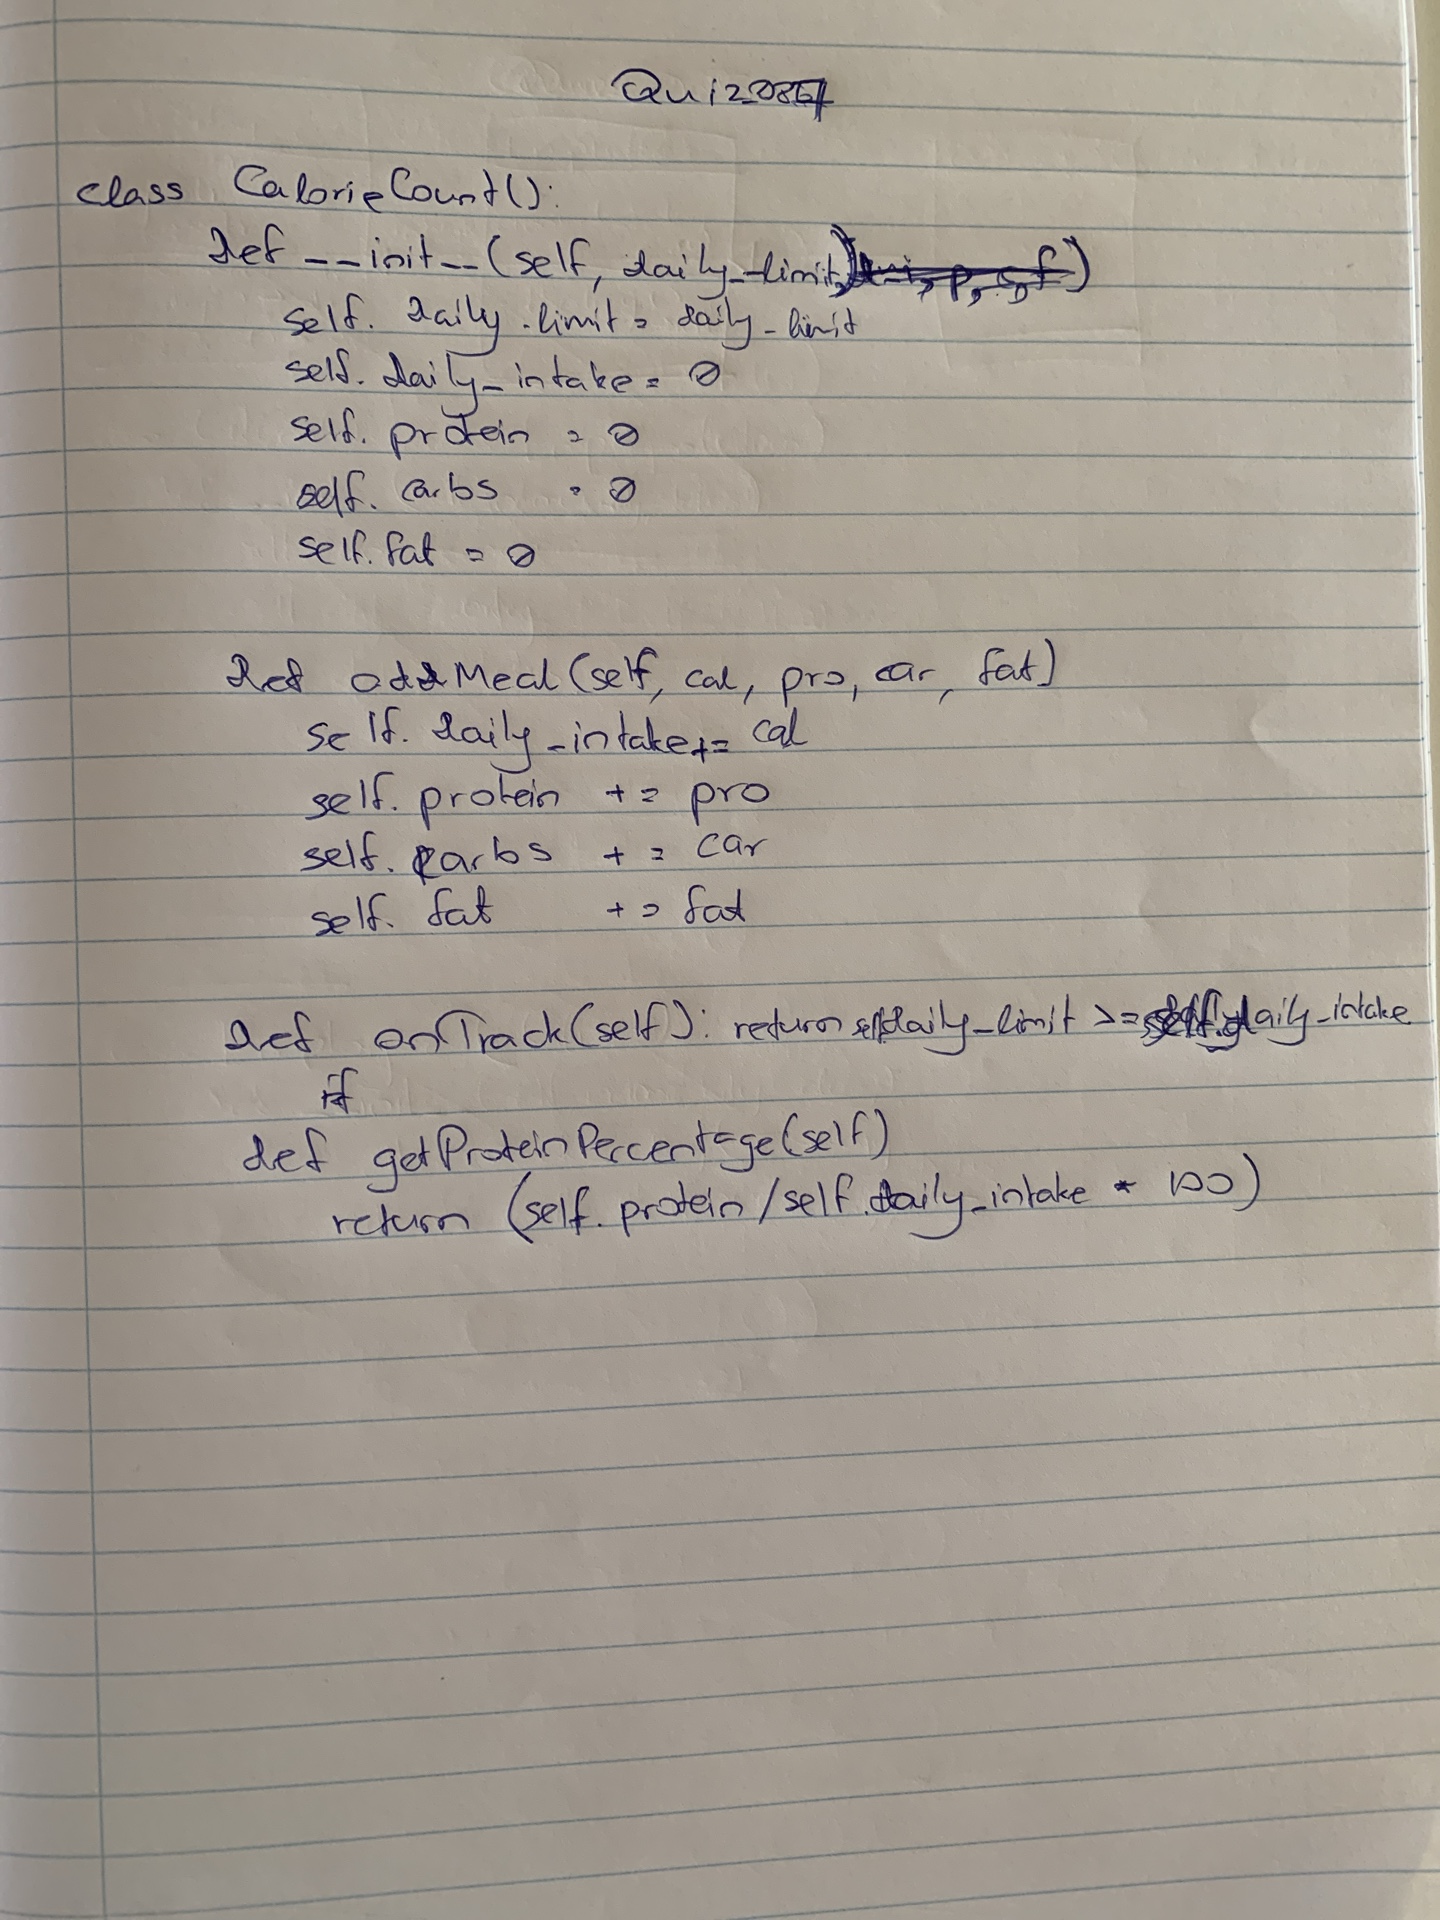 Quiz
class CalorieCount():
def __init__(self, daily_limit)
self.daily_limit = daily_limit
self.daily_intake = 0
self.protein = 0
self.carbs = 0
self.fat = 0
def addMeal(self, cal, pro, car, fat)
self.daily_intake += cal
self.protein += pro
self.carbs += car
self.fat += fat
def onTrack(self): return self.daily_limit >= self.daily_intake
if
def getProteinPercentage(self)
return (self.protein/self.daily_intake * 100)